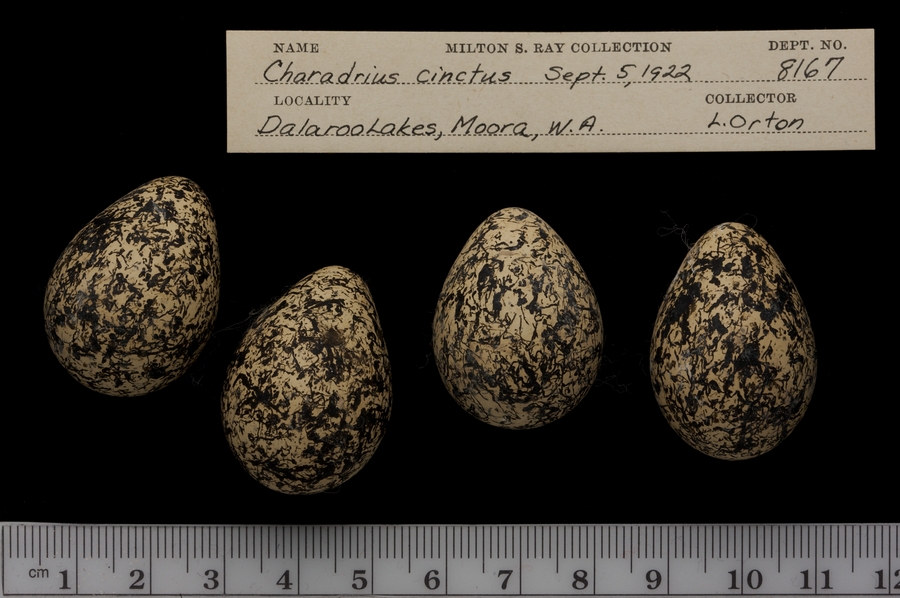 NAME MILTON S. RAY COLLECTION DEPT. NO.
Charadrius cinctus Sept. 5, 1922 8167
LOCALITY COLLECTOR
Dalaroo Lakes, Moora, W.A. L. Orton
cm 1 2 3 4 5 6 7 8 9 10 11 12